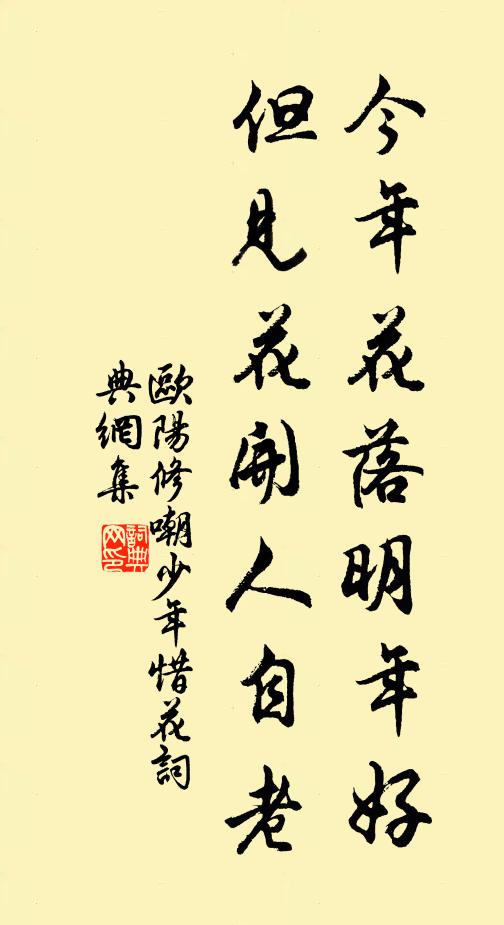 今年花落明年好
但見花開人自老
歐陽修嘲少年惜花詞
典網集
詞典
网印